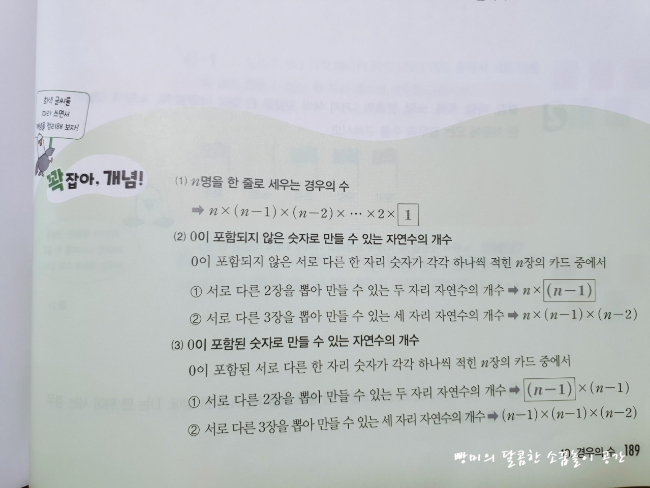 회색 글씨를
따라 쓰면서
개념을 정리해 보자!
꽉 잡아, 개념!
(1) n명을 한 줄로 세우는 경우의 수
➡ n×(n-1)×(n-2)×…×2×1
(2) 0이 포함되지 않은 숫자로 만들 수 있는 자연수의 개수
0이 포함되지 않은 서로 다른 한 자리 숫자가 각각 하나씩 적힌 n장의 카드 중에서
① 서로 다른 2장을 뽑아 만들 수 있는 두 자리 자연수의 개수 ➡ n×(n-1)
② 서로 다른 3장을 뽑아 만들 수 있는 세 자리 자연수의 개수 ➡ n×(n-1)×(n-2)
(3) 0이 포함된 숫자로 만들 수 있는 자연수의 개수
0이 포함된 서로 다른 한 자리 숫자가 각각 하나씩 적힌 n장의 카드 중에서
① 서로 다른 2장을 뽑아 만들 수 있는 두 자리 자연수의 개수 ➡ (n-1)×(n-1)
② 서로 다른 3장을 뽑아 만들 수 있는 세 자리 자연수의 개수 ➡ (n-1)×(n-1)×(n-2)
경우의 수 189
빵미의 달콤한 소꿉놀이 공간